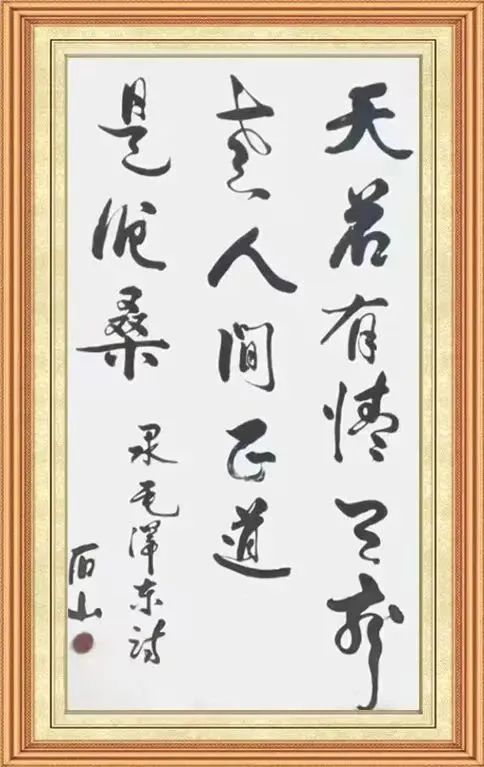 天若有情天亦
老人間正道
是沧桑
录毛澤东诗
石山